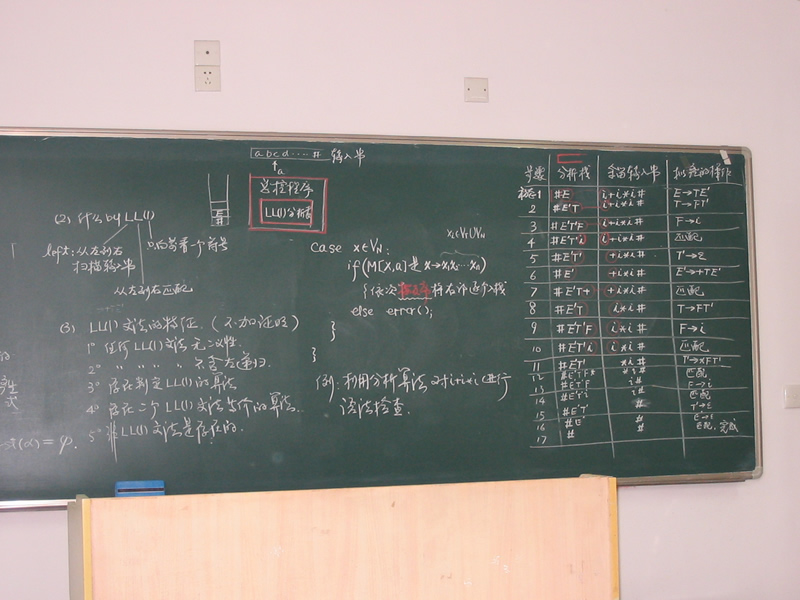 (2) 什么叫 LL(1)
left: 从左到右
扫描输入串
向前看一个符号
从左到右匹配
(3) LL(1)文法的特征. (不加证明)
1° 任何LL(1)文法无二义性.
2° 〃 〃 〃 〃 不含左递归
3° 存在判定LL(1)的算法
4° 存在 LL(1)文法等价的算法.
5° 非LL(1)文法是存在的.
式
(α) = φ.
a b c d ····· # 输入串
a
总控程序
LL(1)分析表
E
#
case X∈VN:
Xi∈VT∪VN
if(M[X,a]是X→X1X2…Xn)
{依次 将右部逐个入栈
else error();
}
}
例. 利用分析算法对i+i*i进行
语法检查.
步骤 分析栈 余留输入串 所做的操作
1 #E i+i*i# E→TE'
2 #E'T i+i*i# T→FT'
3 #E'T'F i+i*i# F→i
4 #E'T'i i+i*i# 匹配
5 #E'T' +i*i# T'→ε
6 #E' +i*i# E'→+TE'
7 #E'T+ +i*i# 匹配
8 #E'T i*i# T→FT'
9 #E'T'F i*i# F→i
10 #E'T'i i*i# 匹配
11 #E'T' *i# T'→*FT'
12 #E'T'F* *i# 匹配
13 #E'T'F i# F→i
14 #E'T'i i# 匹配
15 #E'T' # T'→ε
16 #E' # E'→ε
17 # # 匹配, 完成